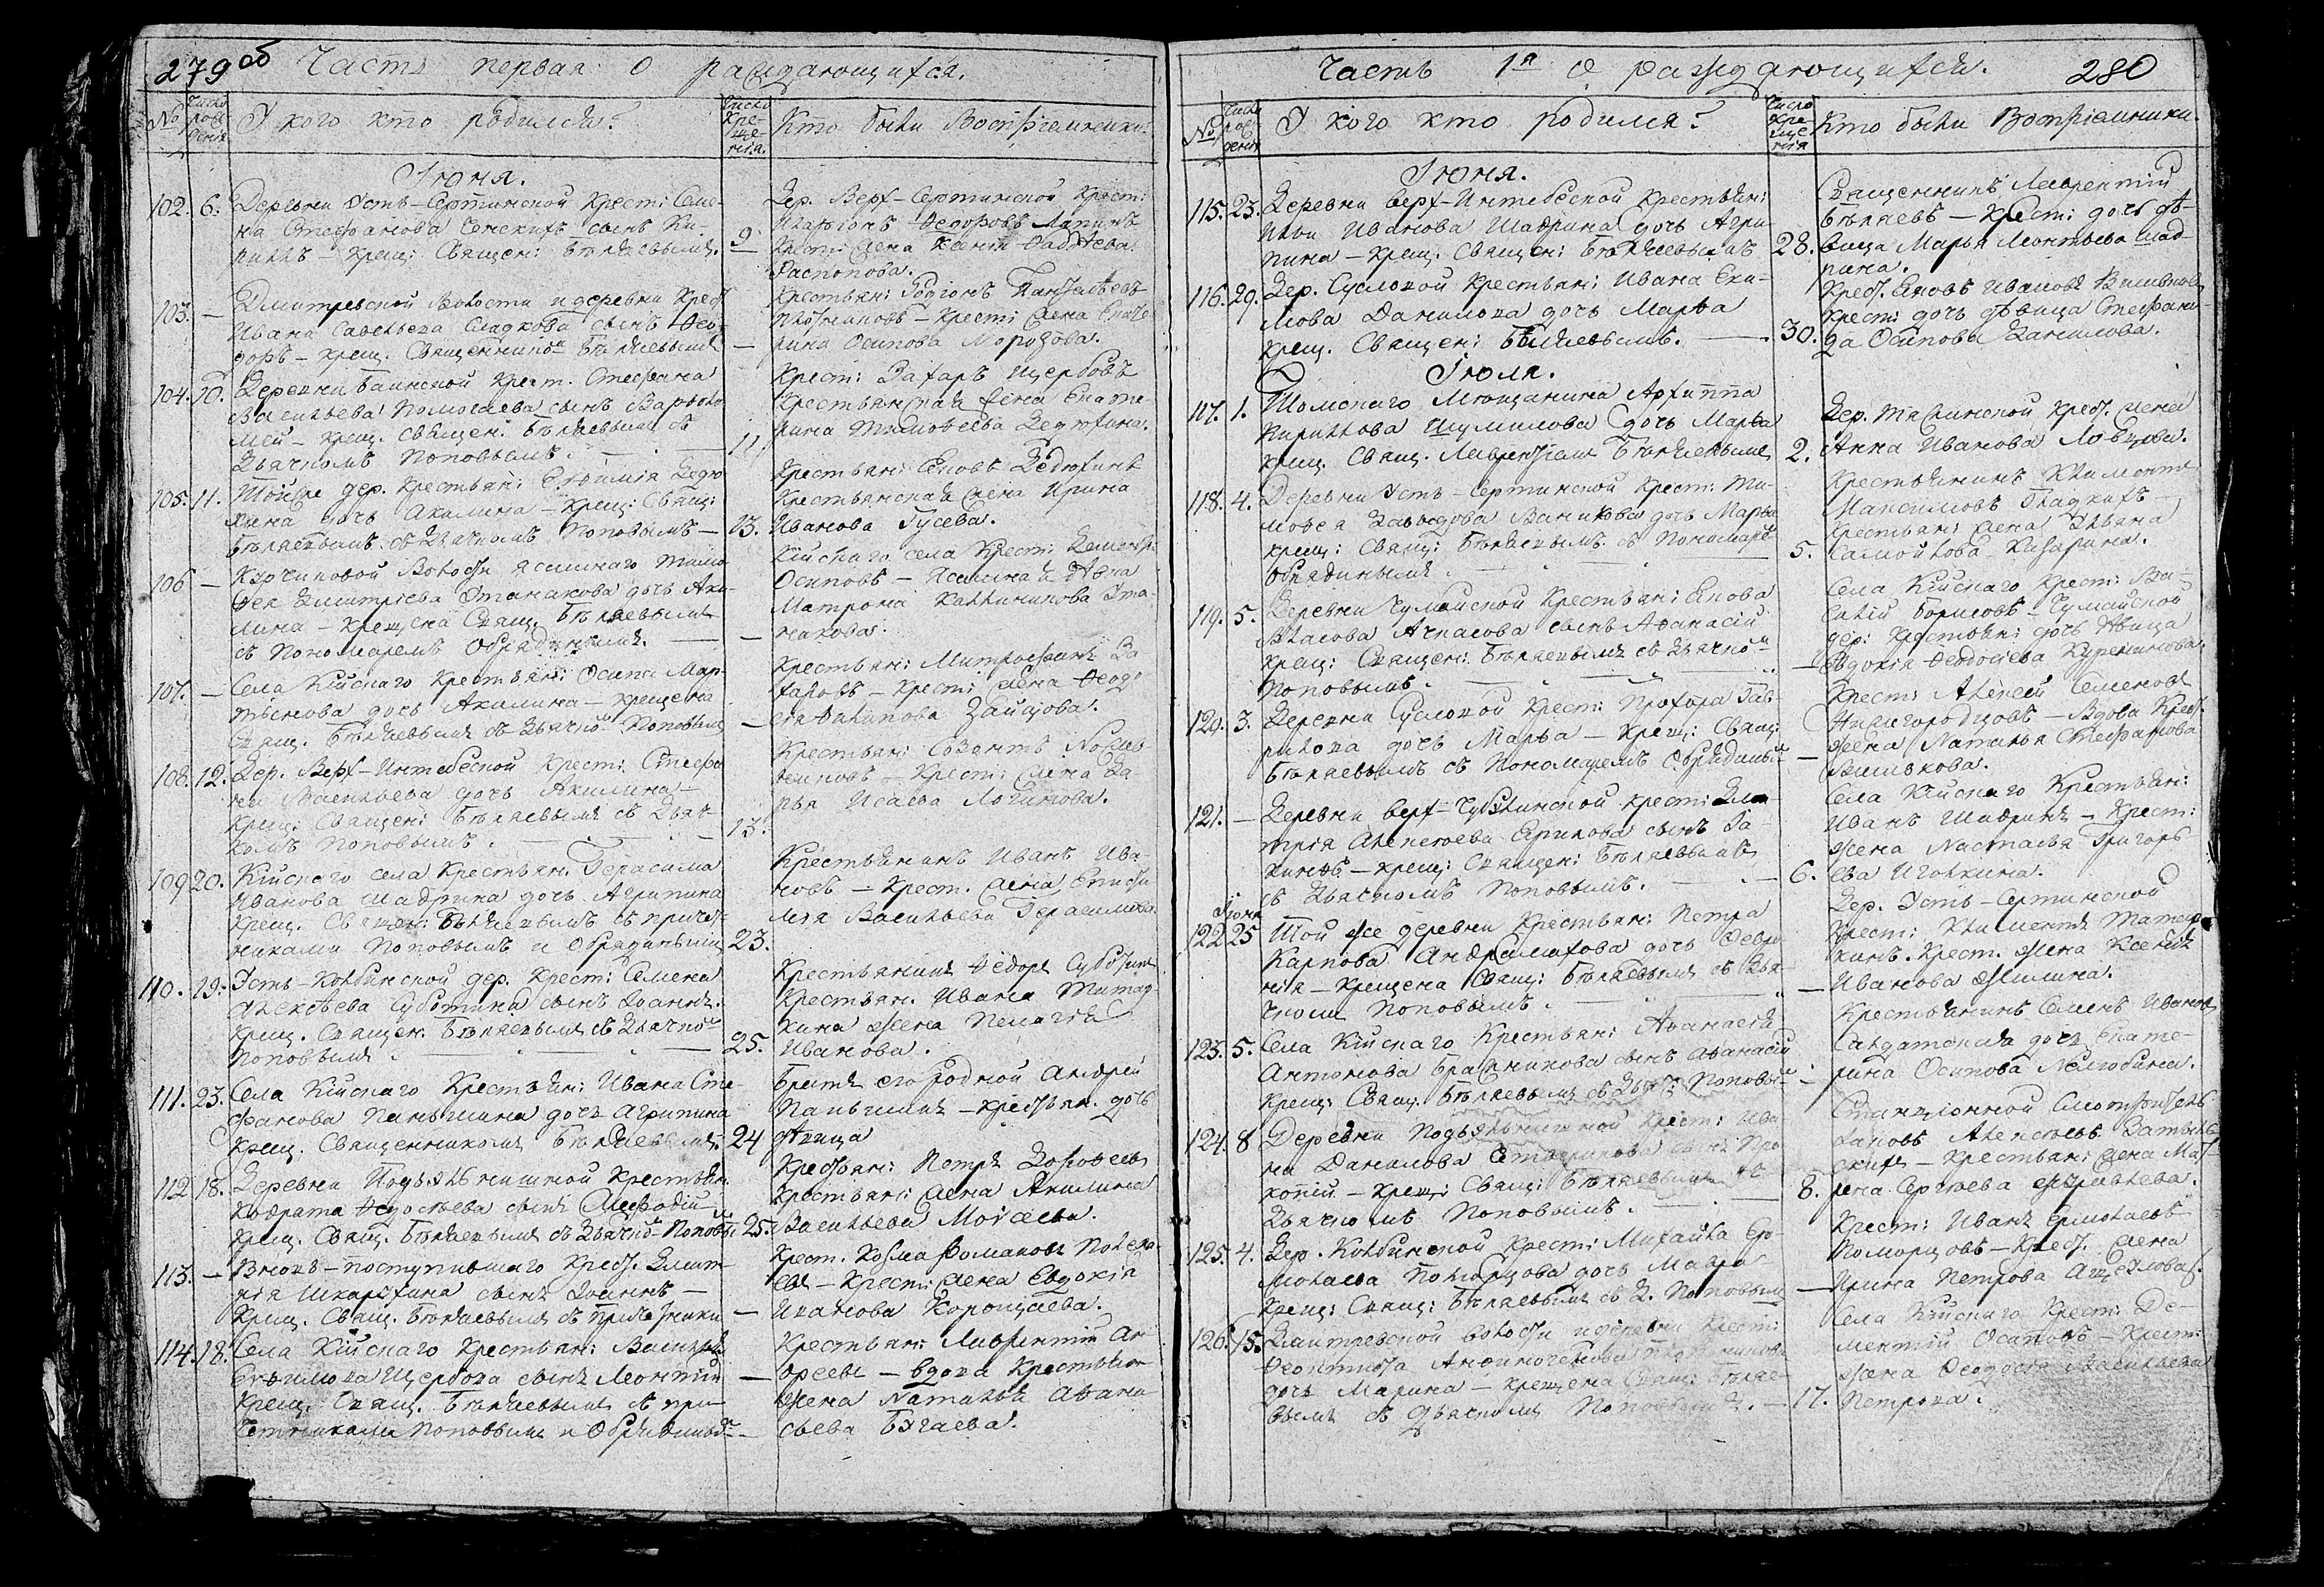 279об Часть первая о раждающихся.
№ Число рождения У кого кто родился? Число крещения. Кто были Воспріемники.
Іюня.
102. 6. Деревни Усть-Сертинской Крест: Семе-
на Стефанова сынъ Ки-
риллъ — крещ: Священ: Бѣляевымъ. 9.
Дер. Верх-Сертинской Крест:
Ѳедоровъ
Крест: жена Фаддѣева
Распопова.
103. — Дмитревской Волости и деревни Крест
Ивана Савельева Сладкова сынъ Ѳео-
доръ — крещ. Священникомъ Бѣляевымъ —
Крестьян: Родіонъ Пантелѣевъ
Плотниковъ — Крест: жена Екате-
рина Осипова Морозова.
104. 10. Деревни Баимской Крест. Стефана
Васильева Помогаева сынъ Варѳоло-
мей — крещ. Священ: Бѣляевымъ съ
Дьячкомъ Поповымъ. 11.
Крест: Захаръ Щербовъ
Крестьянская жена Екате-
рина Тимоѳеева Дедюхина.
105. 11. Той же дер. Крестьян: Евѳимія Дедю-
хина дочь Акилина — крещ: Свящ:
Бѣляевымъ съ Дьячкомъ Поповымъ — 13.
Крестьян: Яковъ Дедюхинъ
Крестьянская жена Ирина
Иванова Гусева.
106 — Волости ясашнаго Тимо-
ѳея Дмитріева дочь Аки-
лина — крещена Свящ. Бѣляевымъ
съ Пономаремъ Обрядинымъ. —
Кійскаго села Крест:
Осиповъ — Ясашная дѣвка
Матрона Каллиникова
107. — Села Кійскаго Крестьян: Осипа Мар-
тынова дочь Акилина — крещена
Свящ. Бѣляевымъ съ Дьячкомъ Поповымъ —
Крестьян: Митрофанъ За-
харовъ — Крест: жена Ѳеодо-
сія Филипова Зайцова.
108. 12. Дер. Верх-Интебеской Крест: Стефа-
на Васильева дочь Акилина —
Крещ: Священ: Бѣляевымъ съ Дьяч-
комъ Поповымъ. 13.
Крестьян: Созонтъ
— Крест: жена Да-
рья Исаева Логинова.
109 20. Кійскаго села Крестьян. Герасима
Иванова Шадрина дочь Агрипина
Крещ. Священ: Бѣляевымъ съ причет-
никами Поповымъ и Обрядинымъ 23.
Крестьянинъ Иванъ Ива-
новъ — Крест. жена Еписти-
мія Васильева Герасимова.
110. 19. Усть-Колбинской дер. Крест: Семена
Алексѣева Суботина сынъ Іоаннъ.
Крещ. Священ. Бѣляевымъ съ Дьячкомъ
Поповымъ. 25.
Крестьянинъ Ѳедоръ Суботинъ
Крестьян. Ивана
жена Пелагія
Иванова.
111. 23. Села Кійскаго Крестьян: Ивана Сте-
фанова Паньшина дочь Агрипина
Крещ. Священникомъ Бѣляевымъ 24
Братъ его родной Андрей
Паньшинъ — крестьян. дочь
дѣвица
112 18. Деревни Подъельнишной Крестьян.
Кодрата Ѳедосѣева сынъ Меѳодій
Крещ. Свящ. Бѣляевымъ съ Дьячкомъ Поповым 25.
Крестьян: Петръ Дороѳеевъ
Крестьян: жена Акилина
Васильева Моисеева.
113. — Вновь-поступившаго Крест. Дмит-
рія сынъ Іоаннъ —
Крещ. Свящ. Бѣляевымъ съ Причетники —
Крест. Козма Фомановъ
— Крест: жена Евдокія
Иванова
114. 18. Села Кійскаго Крестьян: Василья
Евѳимова Щербова сынъ Леонтій —
Крещ. Свящ. Бѣляевымъ съ при-
четниками Поповымъ и Обрядинымъ —
Крестьян: Лаврентій Ан-
дреевъ — вдова Крестьян
жена Наталья Аѳана-
сьева Бугаева.
Часть 1я о раждающихся. 280
№ Число рождения У кого кто родился? Число крещения Кто были Воспріемники.
Іюня.
115. 23. Деревни Верх-Интебеской Крестьян:
Ильи Иванова Шадрина дочь Агри-
пина — крещ. Священ: Бѣляевымъ 28.
Священникъ Лаврентій
Бѣляевъ — Крест: дочь дѣ-
вица Марья Леонтьева Шад-
рина.
116. 29. Дер. Сусловой Крестьян: Ивана Еки-
мова Данилова дочь Марѳа
крещ. Священ: Бѣляевымъ. — 30.
Крест. Яковъ Ивановъ
Крест: дочь дѣвица Стефани-
да Осипова Данилова.
Іюля.
117. 1. Томскаго Мѣщанина Архиппа
Кирилова Шумилова дочь Марѳа
крещ. Свящ. Лаврентіемъ Бѣляевымъ 2.
Дер. Крест. жена
Анна Иванова Ловцова.
118. 4. Деревни Усть-Сертинской Крест: Ти-
моѳея Давыдова Ваникова дочь Марѳа
крещ: Свящ: Бѣляевымъ съ Пономаремъ
Обрядинымъ. 5.
Крестьянинъ Климентъ
Максимовъ Гладкихъ —
Крестьян: жена Ульяна
Самойлова
119. 5. Деревни Чумайской Крестьян: Якова
Власова Ачпасова сынъ Аѳанасій
Крещ: Священ: Бѣляевымъ съ Дьячкомъ
Поповымъ. —
Села Кійскаго Крест: Ва-
силій Борисовъ — Чумайской
дер: Крестьян: дочь дѣвица
Евдокія Ѳеодосіева Куренкова.
120. 3. Деревни Сусловой Крест: Прохора Гав-
рилова дочь Марѳа — крещ: Свящ:
Бѣляевымъ съ Пономаремъ Обрядинымъ —
Крест: Алексей Семеновъ
Нижегородцовъ — Вдова Крест.
жена Наталья Стефанова
121. — Деревни Верх-Чубулинской Крест: Дми-
трія Алексеева Ерилова сынъ
— крещ: Священ: Бѣляевымъ
съ Дьячкомъ Поповымъ. — 6.
Села Кійскаго Крестьян:
Иванъ Шадринъ — Крест:
жена Настасья Григорь-
ева Иголкина.
Іюня
122 25 Той же деревни Крестьян: Петра
Карпова дочь Февро-
нія — крещена Свящ: Бѣляевымъ съ Дья-
чкомъ Поповымъ. —
Дер. Усть-Сертинской
Крест: Климентъ
Крест. жена Ксенія
Иванова Жилина.
123. 5. Села Кійскаго Крестьян: Аѳанасія
Антонова Бражникова сынъ Аѳанасій
Крещ: Свящ. Бѣляевымъ съ Дьяч: Поповым —
Крестьянинъ Семенъ Ивановъ
Салдатская дочь Екате-
рина Осипова
124. 8 Деревни Подъельнишной Крест: Ива-
на Данилова сынъ Про-
копій — крещ: Свящ: Бѣляевымъ съ
Дьячкомъ Поповымъ. — 8.
Станціонной Смотритель
Алексеевъ
— Крестьян: жена Мат-
рена Сергѣева Журавлева.
125. 4. Дер. Колбинской Крест: Михайла Ер-
молаева Поморцова дочь Мавра —
Крещ: Свящ: Бѣляевымъ съ Д. Поповым —
Крест: Иванъ Ермолаевъ
Поморцовъ — Крест. жена
Ирина Петрова
126. 15. Дмитревской волости и деревни Крест:
дочь Марина — крещена Свящ: Бѣляе-
вымъ съ Дьячкомъ Поповымъ. — 17.
Села Кійскаго Крест: Де-
ментій Осиповъ — Крест:
жена Ѳеодосія Васильева
Петрова.